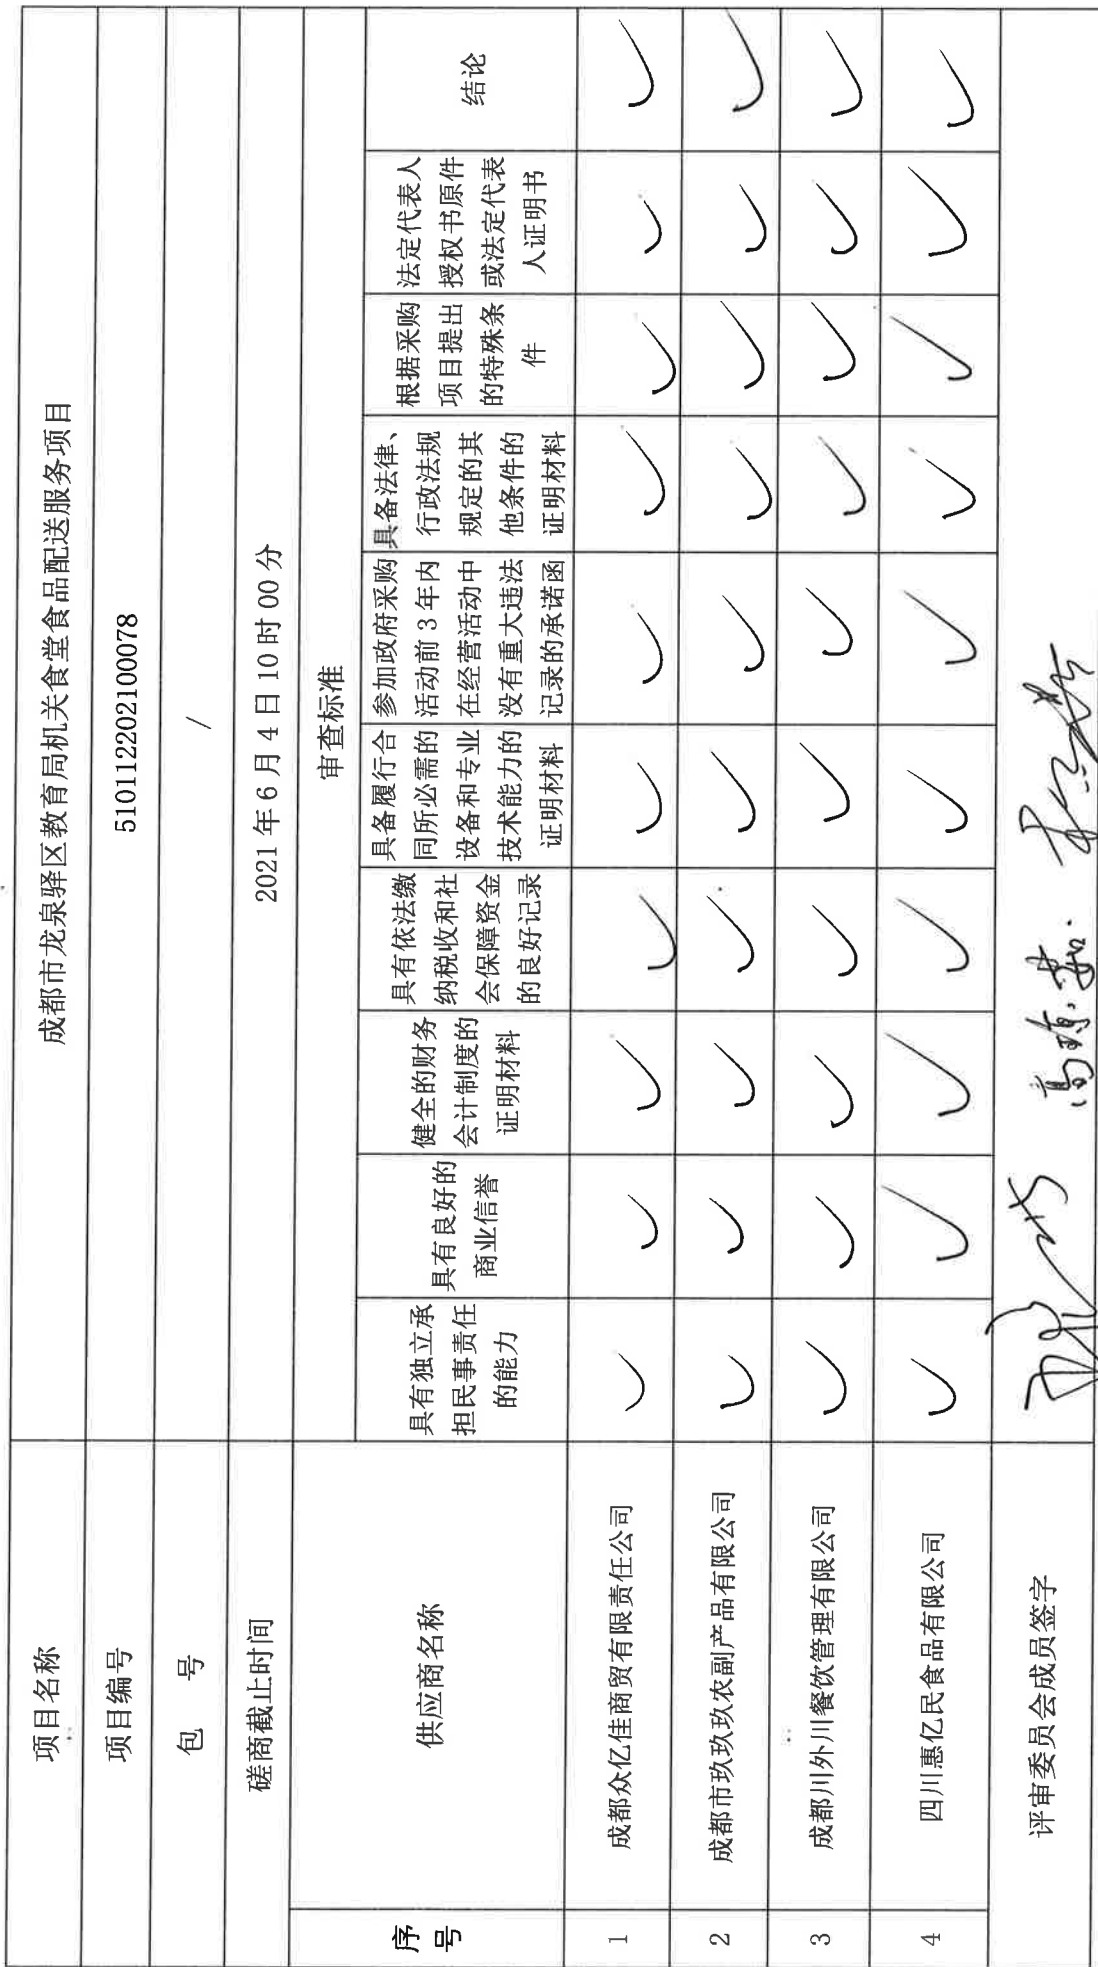 项目名称 成都市龙泉驿区教育局机关食堂食品配送服务项目
项目编号 510112202100078
包 号 /
磋商截止时间 2021 年 6 月 4 日 10 时 00 分
序号 供应商名称 审查标准
具有独立承
担民事责任
的能力
具有良好的
商业信誉
健全的财务
会计制度的
证明材料
具有依法缴
纳税收和社
会保障资金
的良好记录
具备履行合
同所必需的
设备和专业
技术能力的
证明材料
参加政府采购
活动前 3 年内
在经营活动中
没有重大违法
记录的承诺函
具备法律、
行政法规
规定的其
他条件的
证明材料
根据采购
项目提出
的特殊条
件
法定代表人
授权书原件
或法定代表
人证明书
结论
1 成都众亿佳商贸有限责任公司 √ √ √ √ √ √ √ √ √ √
2 成都市玖玖玖农副产品有限公司 √ √ √ √ √ √ √ √ √ √
3 成都川外川餐饮管理有限公司 √ √ √ √ √ √ √ √ √ √
4 四川惠亿民食品有限公司 √ √ √ √ √ √ √ √ √ √
评审委员会成员签字